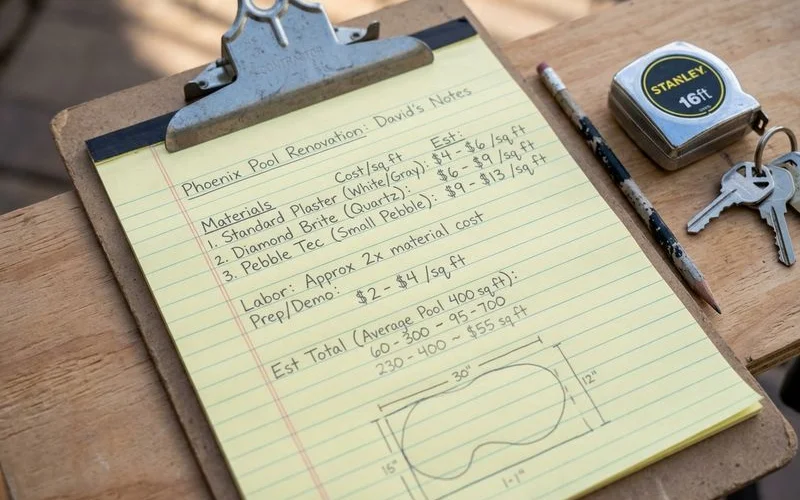 Phoenix Pool Renovation: David's Notes
Materials Cost/sq ft Est:
1. Standard Plaster (White/Gray): $4 - $6 /sq ft
2. Diamond Brite (Quartz): $6 - $9 /sq ft
3. Pebble Tec (Small Pebble): $9 - $13 /sq ft
Labor: Approx 2x material cost
Prep/Demo: $2 - $4 /sq ft
Est Total (Average Pool 400 sq ft):
60 - 300 - 95 - 700
230 - 400 ~ $55 sq ft
30"
12"
15"
1-1"
STANLEY
16ft